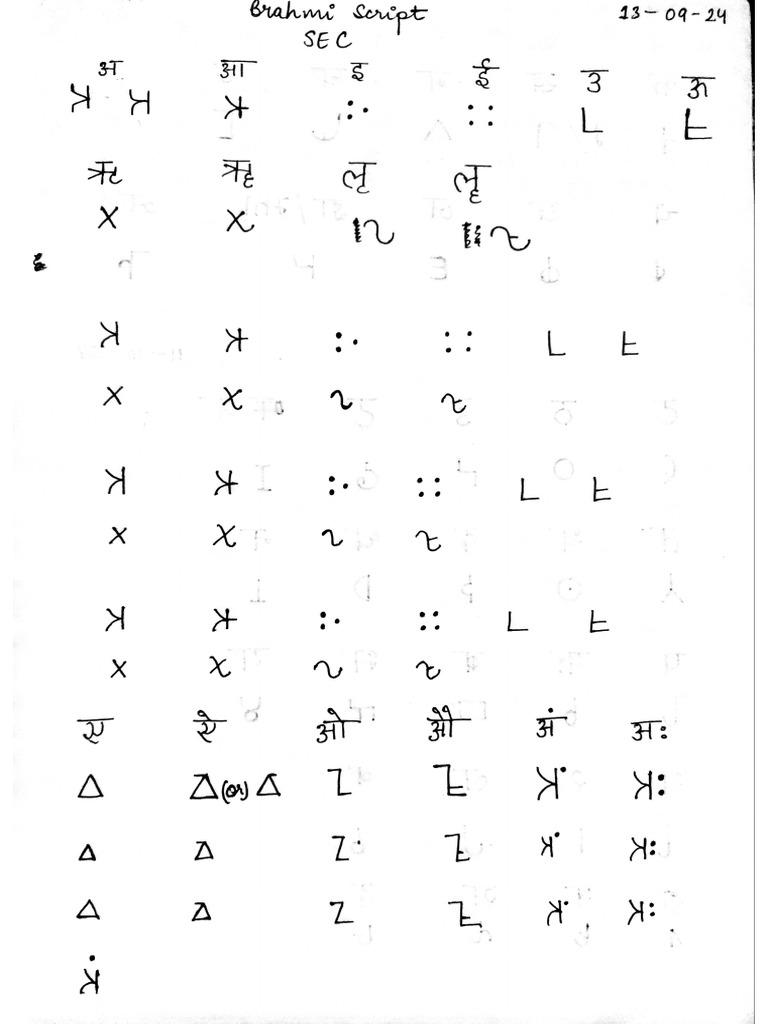 Brahmi Script 13-09-24
SEC
अ आ इ ई उ ऊ
𑀅 𑀅 𑀆 𑀇 𑀈 𑀉 𑀊
ऋ ॠ ऌ ॡ
𑀋 𑀌 𑀍 𑀎
𑀅 𑀆 𑀇 𑀈 𑀉 𑀊
𑀋 𑀌 𑀍 𑀎
𑀅 𑀆 𑀇 𑀈 𑀉 𑀊
𑀋 𑀌 𑀍 𑀎
𑀅 𑀆 𑀇 𑀈 𑀉 𑀊
𑀋 𑀌 𑀍 𑀎
ए ऐ ओ औ अं अः
𑀏 𑀐 (or) 𑀐 𑀑 𑀒 𑀅𑀁 𑀅𑀂
𑀏 𑀐 𑀑 𑀒 𑀅𑀁 𑀅𑀂
𑀏 𑀐 𑀑 𑀒 𑀅𑀁 𑀅𑀂
𑀅𑀁